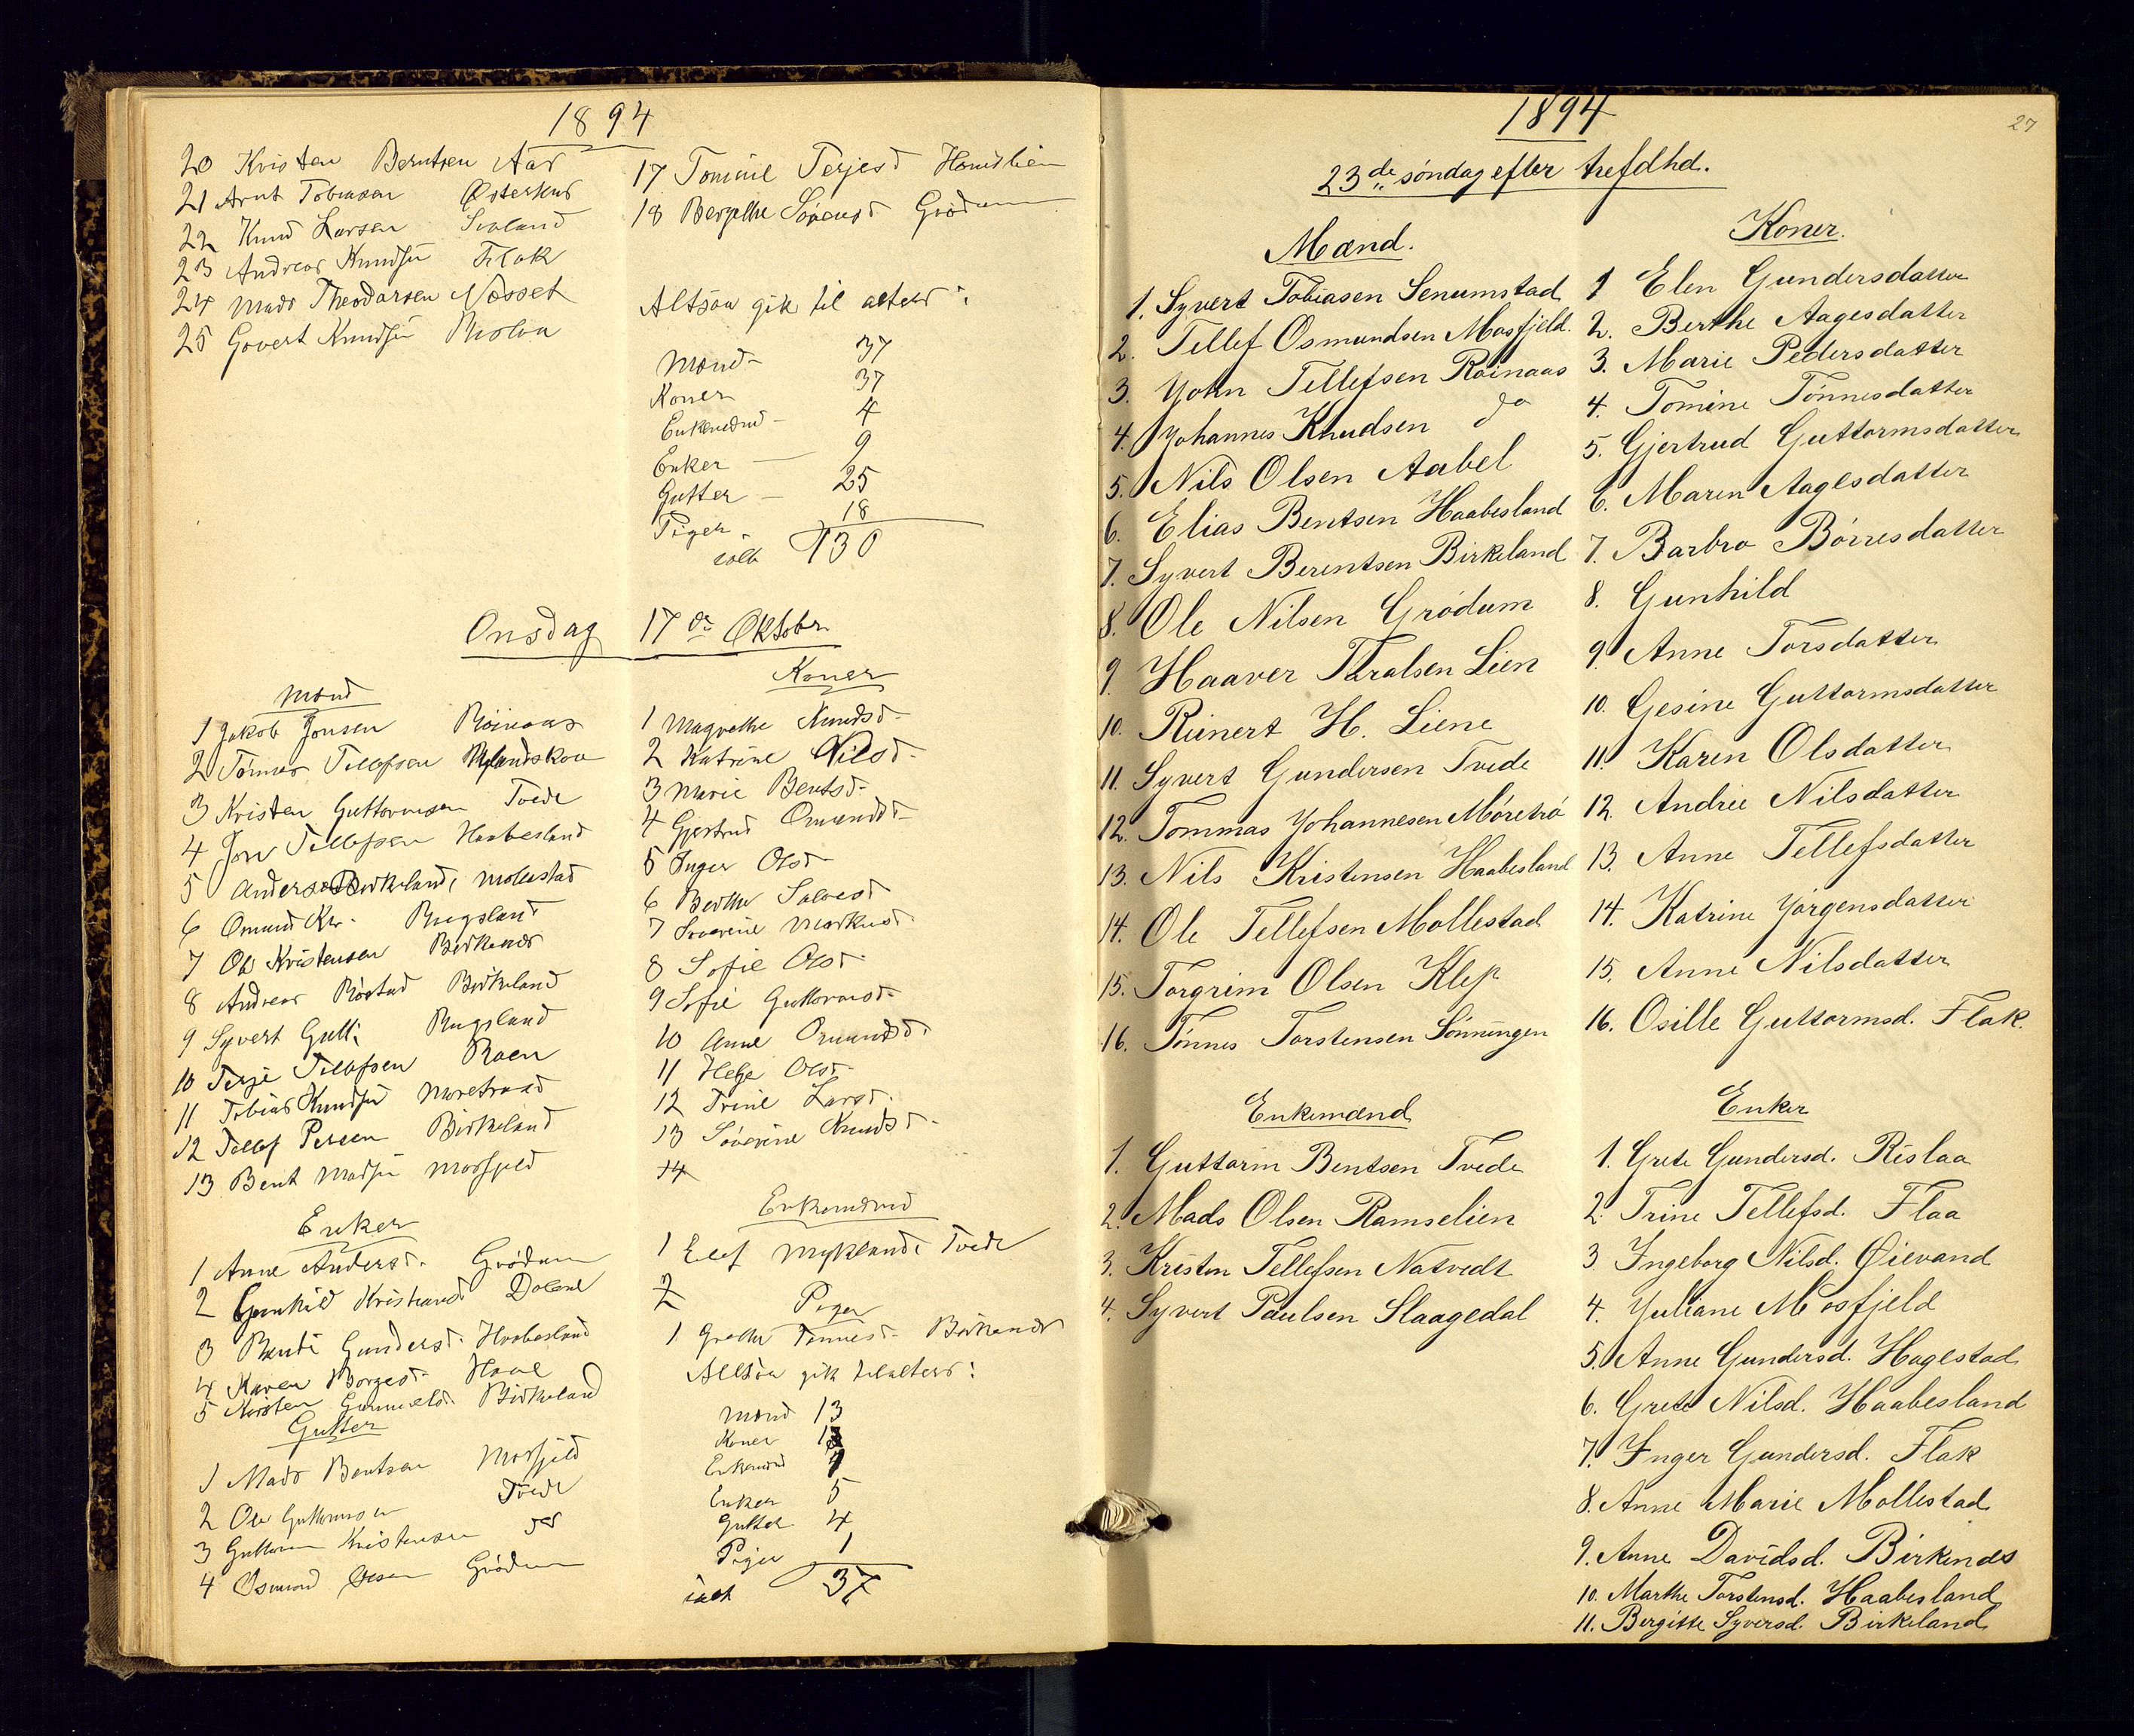 1894
20 Kristen Berntsen Aas
21 Arnt Tobiassen Østerhus
22 Knud Larsen
23 Andreas Knudsen Flak
24 Mads Theodorsen Næsset
25 Govert Knudsen Rislaa
17 Tomine Terjesd Hamslien
18 Bergithe Sørensd Grødum
Altsaa gik til alters:
Mænd - 37
Koner 37
Enkemænd - 4
Enker — 9
Gutter - 25
Piger 18
ialt 130
Onsdag 17de Oktobr
Mænd
1 Jakob Jonsen Røinaas
2 Tønnes Tellefsen
3 Kristen Guttormsen Tvede
4 Jon Tellefsen Haabesland
5 Anders Birkeland, Mollestad
6 Omund Kr. Rugsland
7 Ole Kristensen Birkenes
8 Andreas Birkeland
9 Syvert Gutt. Rugsland
10 Terje Tellefsen Raen
11 Tobias Knudsen
12 Tellef Persen Birkeland
13 Bent Madsen Mosfjeld
Koner
1 Magrethe Knudsd.
2 Katrine Nilsd.
3 Marie Bentsd.
4 Gjertrud Omundsd.
5 Inger Olsd.
6 Berthe Salvesd
7 Severine Markusd.
8 Sofie Olsd.
9 Sofie Guttormsd.
10 Anne Omundsd.
11 Helge Olsd.
12 Trine Larsd.
13 Severine Knudsd.
14
Enker
1 Anne Andersd. Grødum
2 Gunhild Kristiansd Dolene
3 Berte Gundersd. Haabesland
4 Karen Børgesd.
5 Kirsten Gunnulsd. Birkeland
Enkemænd
1 Elef Myklands Tvede
2
Piger
1 Grethe Tønnesd. Birkenes
Altsaa gik til alters:
Mænd 13
Koner 13
Enkemænd 1
Enker 5
Gutter 4
Piger 1
ialt 37
Gutter
1 Mads Bentsen Mosfjeld
2 Ole Guttormsen Tvede
3 Guttorm Kristensen do
4 Osmund Olsen Grødum
27
1894
23de søndag efter trefdhd.
Mænd.
1. Syvert Tobiasen Senumstad
2. Tellef Osmundsen Mosfjeld.
3. Yohn Tellefsen Røinaas
4. Yohannes Knudsen do
5. Nils Olsen Aabel
6. Elias Bentsen Haabesland
7. Syvert Berentsen Birkeland
8. Ole Nilsen Grødum
9. Haaver Taralsen Lien
10. Reinert H. Liene
11. Syvert Gundersen Tvede
12. Tommas Yohannesen Møretrø
13. Nils Kristensen Haabesland
14. Ole Tellefsen Mollestad
15. Torgrim Olsen Klep
16. Tønnes Torstensen Sønningen
Koner.
1 Elen Gundersdatter
2. Berthe Aagesdatter
3. Marie Pedersdatter
4. Tomine Tønnesdatter
5. Gjertrud Guttormsdatter
6. Maren Aagesdatter
7. Barbro Børresdatter
8. Gunhild
9. Anne Torsdatter
10. Gesine Guttormsdatter
11. Karen Olsdatter
12. Andrie Nilsdatter
13. Anne Tellefsdatter
14. Katrine Yørgensdatter
15. Anne Nilsdatter
16. Osille Guttormsd. Flak.
Enkemænd
1. Guttorm Bentsen Tvede
2. Mads Olsen Ramselien
3. Kristen Tellefsen Natvedt
4. Syvert Paulsen Slaagedal
Enker
1. Grete Gundersd. Rislaa
2. Trine Tellefsd. Flaa
3. Yngeborg Nilsd. Øievand
4. Yuliane Mosfjeld
5. Anne Gundersd. Hagestad
6. Grete Nilsd. Haabesland
7. Ynger Gundersd. Flak
8. Anne Marie Mollestad
9. Anne Davidsd. Birkenes
10. Marthe Torstensd. Haabesland
11. Bergitte Syversd. Birkeland